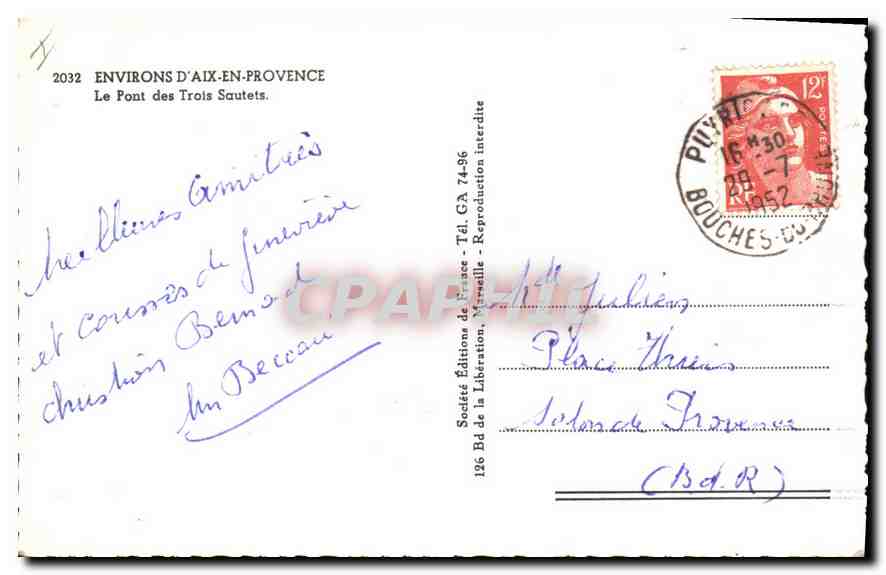 2032 ENVIRONS D'AIX-EN-PROVENCE
Le Pont des Trois Sautets.
Meilleures amitiés
et de Geneviève
Christian Bernard
Beccau
Société Éditions de France - Tél. GA 74-96
126 Bd de la Libération, Marseille - Reproduction interdite
12F
POSTES
RF
PUYRIC
16H30
28-7
1952
BOUCHES-DU-RHONE
CPAPHIL
Julien
Place
Salon de Provence
(B.d.R)